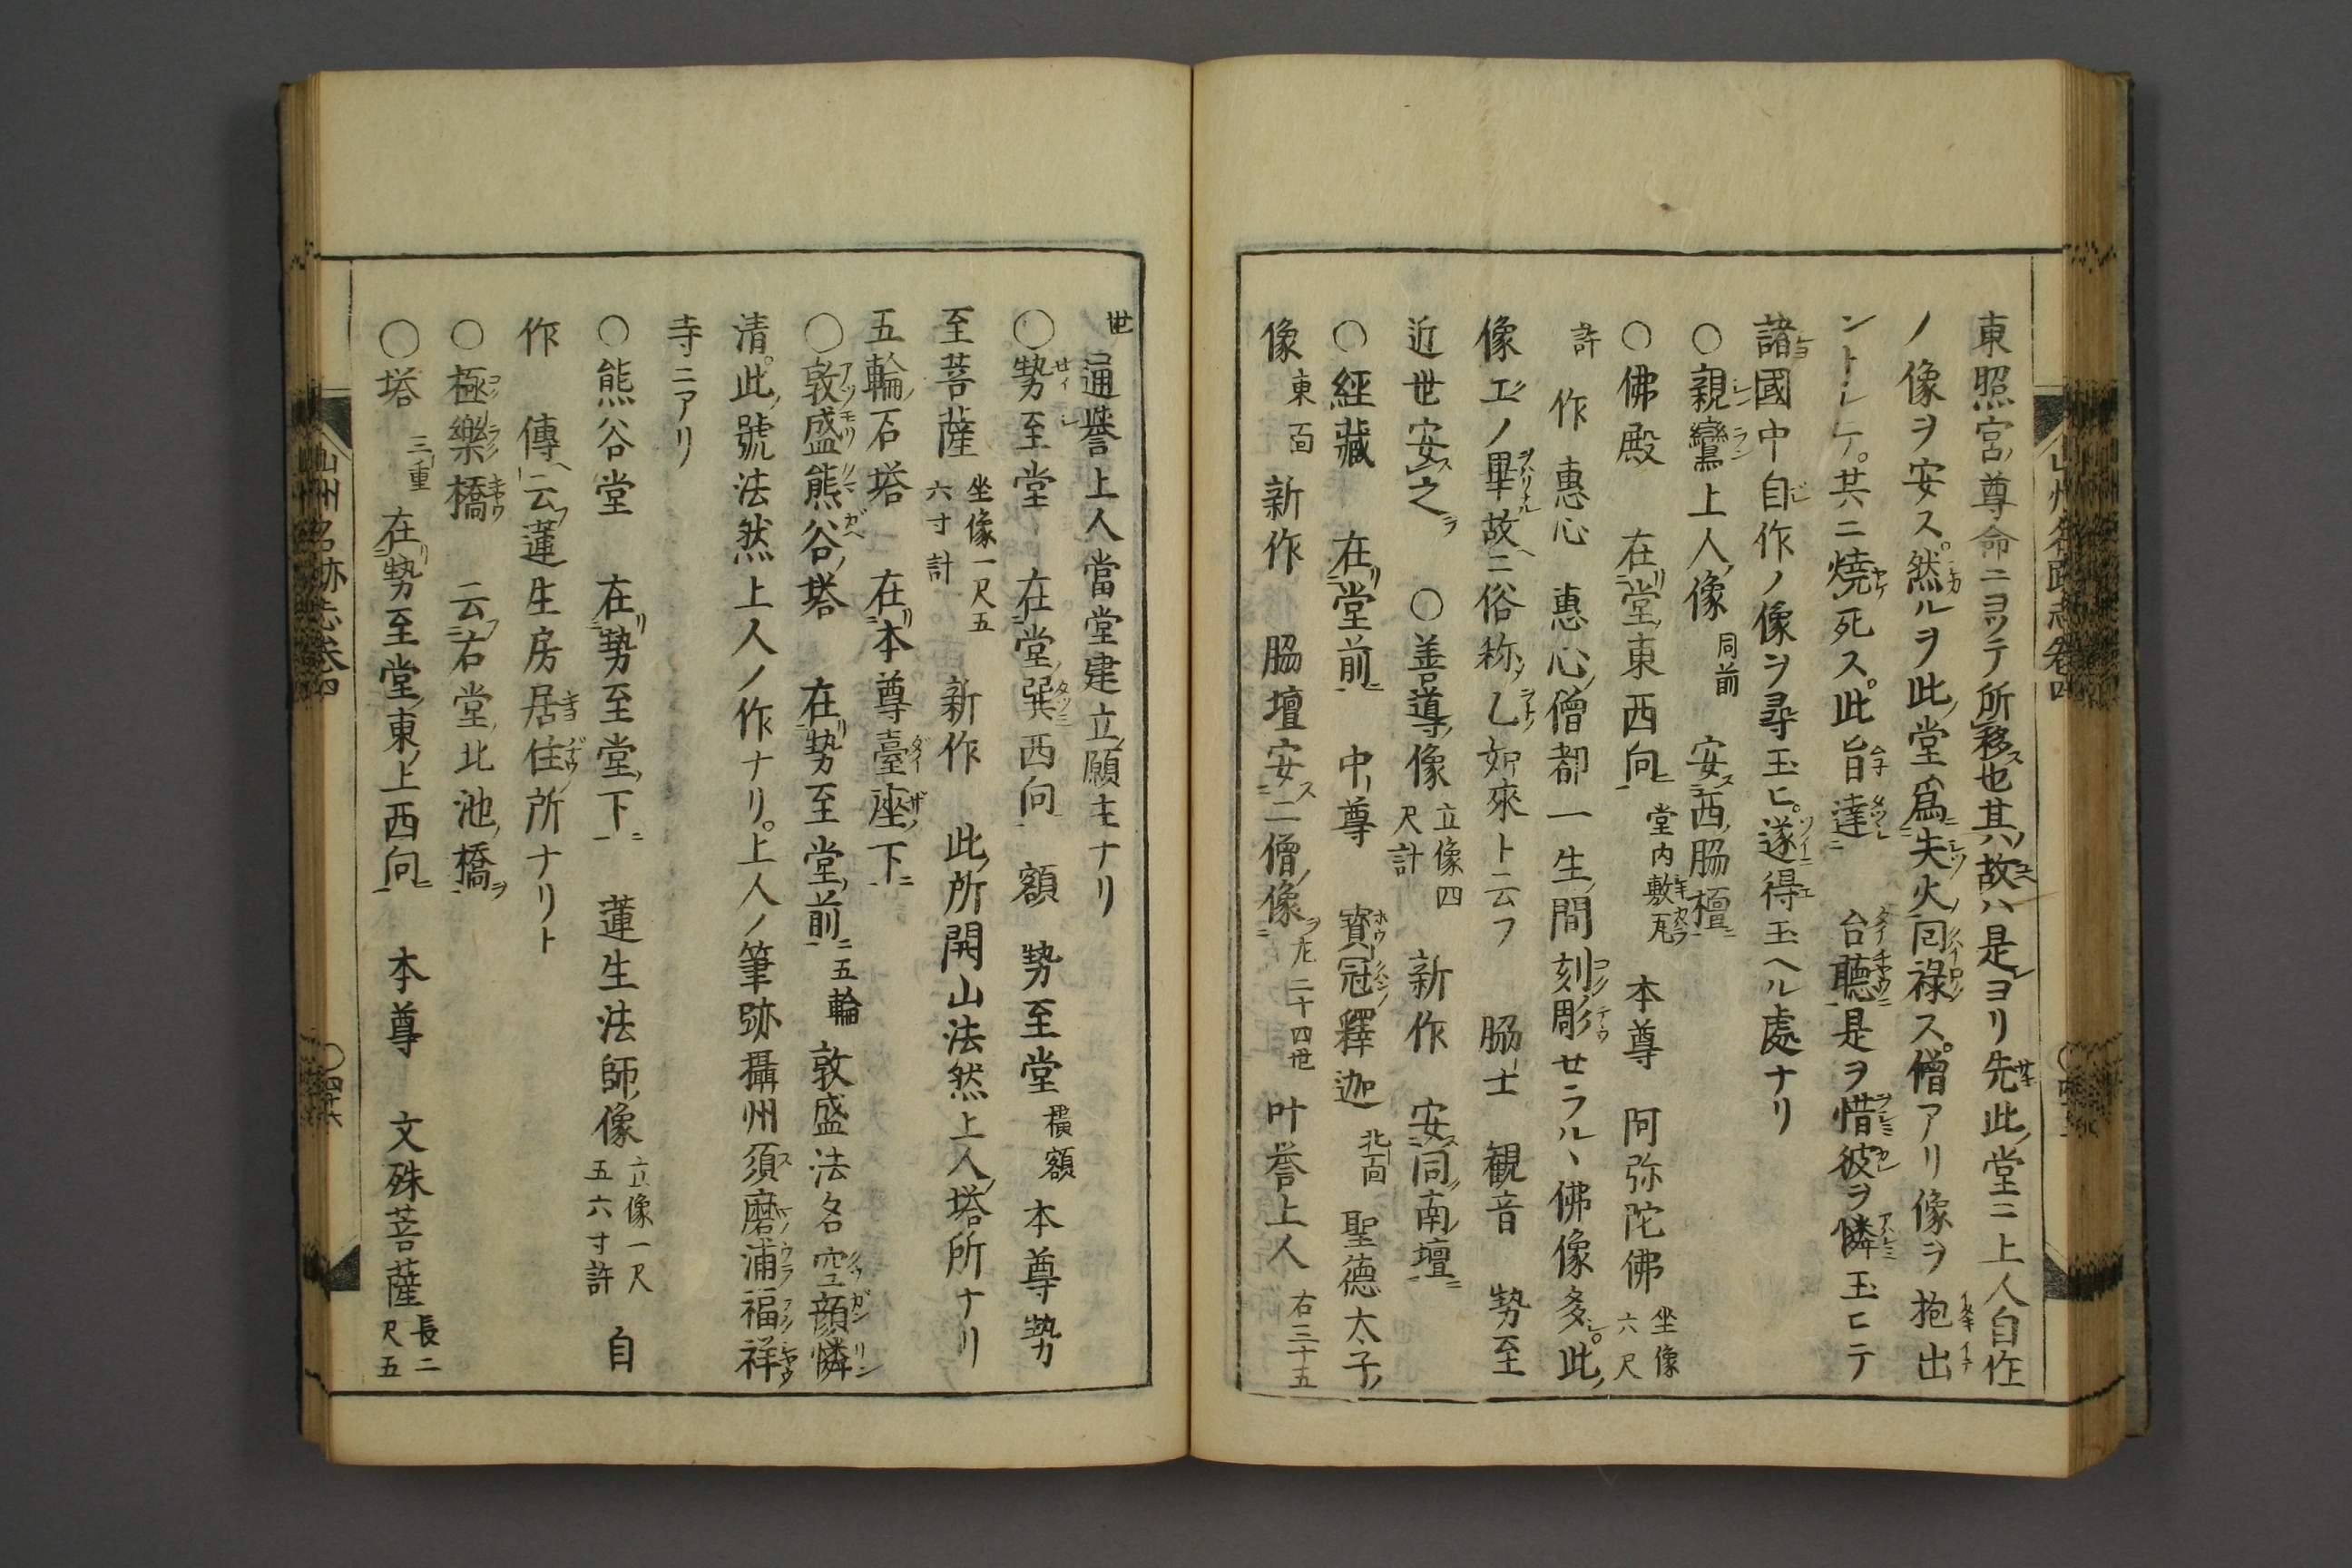 東照宮ノ尊命ニヨツテ所移ス也其ノ故ハ是ヨリ先此ノ堂ニ上人自作
ノ像ヲ安ス。然ルヲ此ノ堂爲失火回祿ス。僧アリ像ヲ抱出
ントシテ。共ニ燒死ス。此旨達 台聽是ヲ惜彼ヲ憐玉ヒテ
諸國中自作ノ像ヲ尋玉ヒ。遂得玉ヘル處ナリ
○親鸞上人ノ像 同前 安西ノ脇檀
○佛殿 在堂ノ東西向 堂内敷瓦 本尊 阿弥陀佛 坐像六尺
許 作 惠心 惠心ノ僧都一生ノ間刻彫セラルヽ佛像多シ。此ノ
像エノ畢故ニ俗称乚如來ト云フ 脇士 観音 勢至
近世安之 ○善導ノ像 立像四尺計 新作 安同南壇
○經藏 在堂前 中尊 寶冠釋迦 北面 聖德太子ノ
像 東面 新作 脇壇安二僧ノ像 左二十四世 叶誉上人 右三十五
世 通誉上人當堂建立ノ願主ナリ
○勢至堂 在堂ノ巽西向 額 勢至堂 横額 本尊勢
至菩薩 坐像一尺五六寸計 新作 此ノ所開山法然上人ノ塔所ナリ
五輪ノ石塔 在本尊臺座ノ下
○敦盛熊谷ノ塔 在勢至堂ノ前 五輪 敦盛法名空顔憐
清。此ノ號法然上人ノ作ナリ。上人ノ筆跡攝州須磨浦福祥
寺ニアリ
○熊谷堂 在勢至堂ノ下 蓮生法師ノ像 立像一尺五六寸許 自
作 傳云蓮生房居住ノ所ナリト
○極樂橋 云右堂ノ北池ノ橋ヲ
○塔 三重 在勢至堂ノ東ノ上西向 本尊 文殊菩薩 長二尺五
山州名跡志卷四
山州名跡志卷四